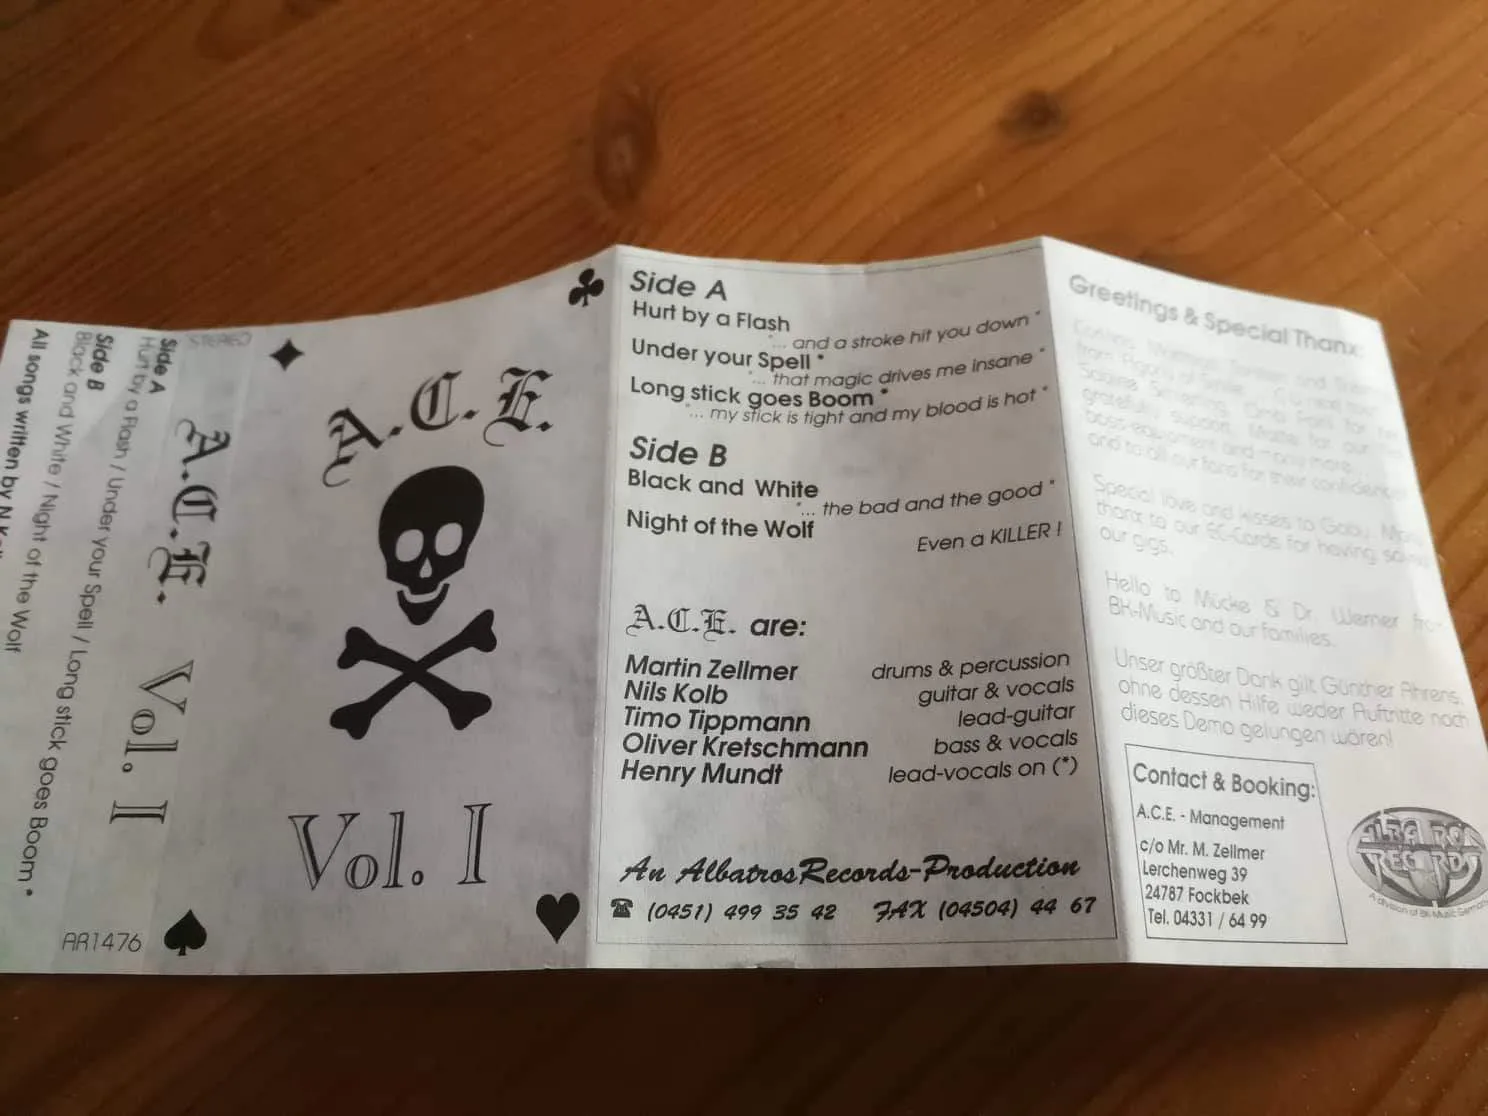 STEREO
Side A
Hurt by a Flash / Under your Spell / Long stick goes Boom *
Side B
Black and White / Night of the Wolf
All songs written by N.
A.C.E. Vol. I
AR1476
A.C.E.
Vol. I
Side A
Hurt by a Flash
"... and a stroke hit you down "
Under your Spell *
"... that magic drives me insane "
Long stick goes Boom *
"... my stick is tight and my blood is hot "
Side B
Black and White
"... the bad and the good "
Night of the Wolf
Even a KILLER !
A.C.E. are:
Martin Zellmer drums & percussion
Nils Kolb guitar & vocals
Timo Tippmann lead-guitar
Oliver Kretschmann bass & vocals
Henry Mundt lead-vocals on (*)
An AlbatrosRecords-Production
☎ (0451) 499 35 42 FAX (04504) 44 67
Greetings & Special Thanx:
from Agony
support,
bass-equipment and many more
and to all our fans for their confidence!
Special love and kisses to Gaby,
thanx to our for having
our gigs.
Hello to Mücke & Dr. Werner
BK-Music and our families.
Unser größter Dank gilt Günther Ahrens,
ohne dessen Hilfe weder Auftritte noch
dieses Demo gelungen wären!
Contact & Booking:
A.C.E. - Management
c/o Mr. M. Zellmer
Lerchenweg 39
24787 Fockbek
Tel. 04331 / 64 99
ALBATROS
RECORDS
A division of BK-Music